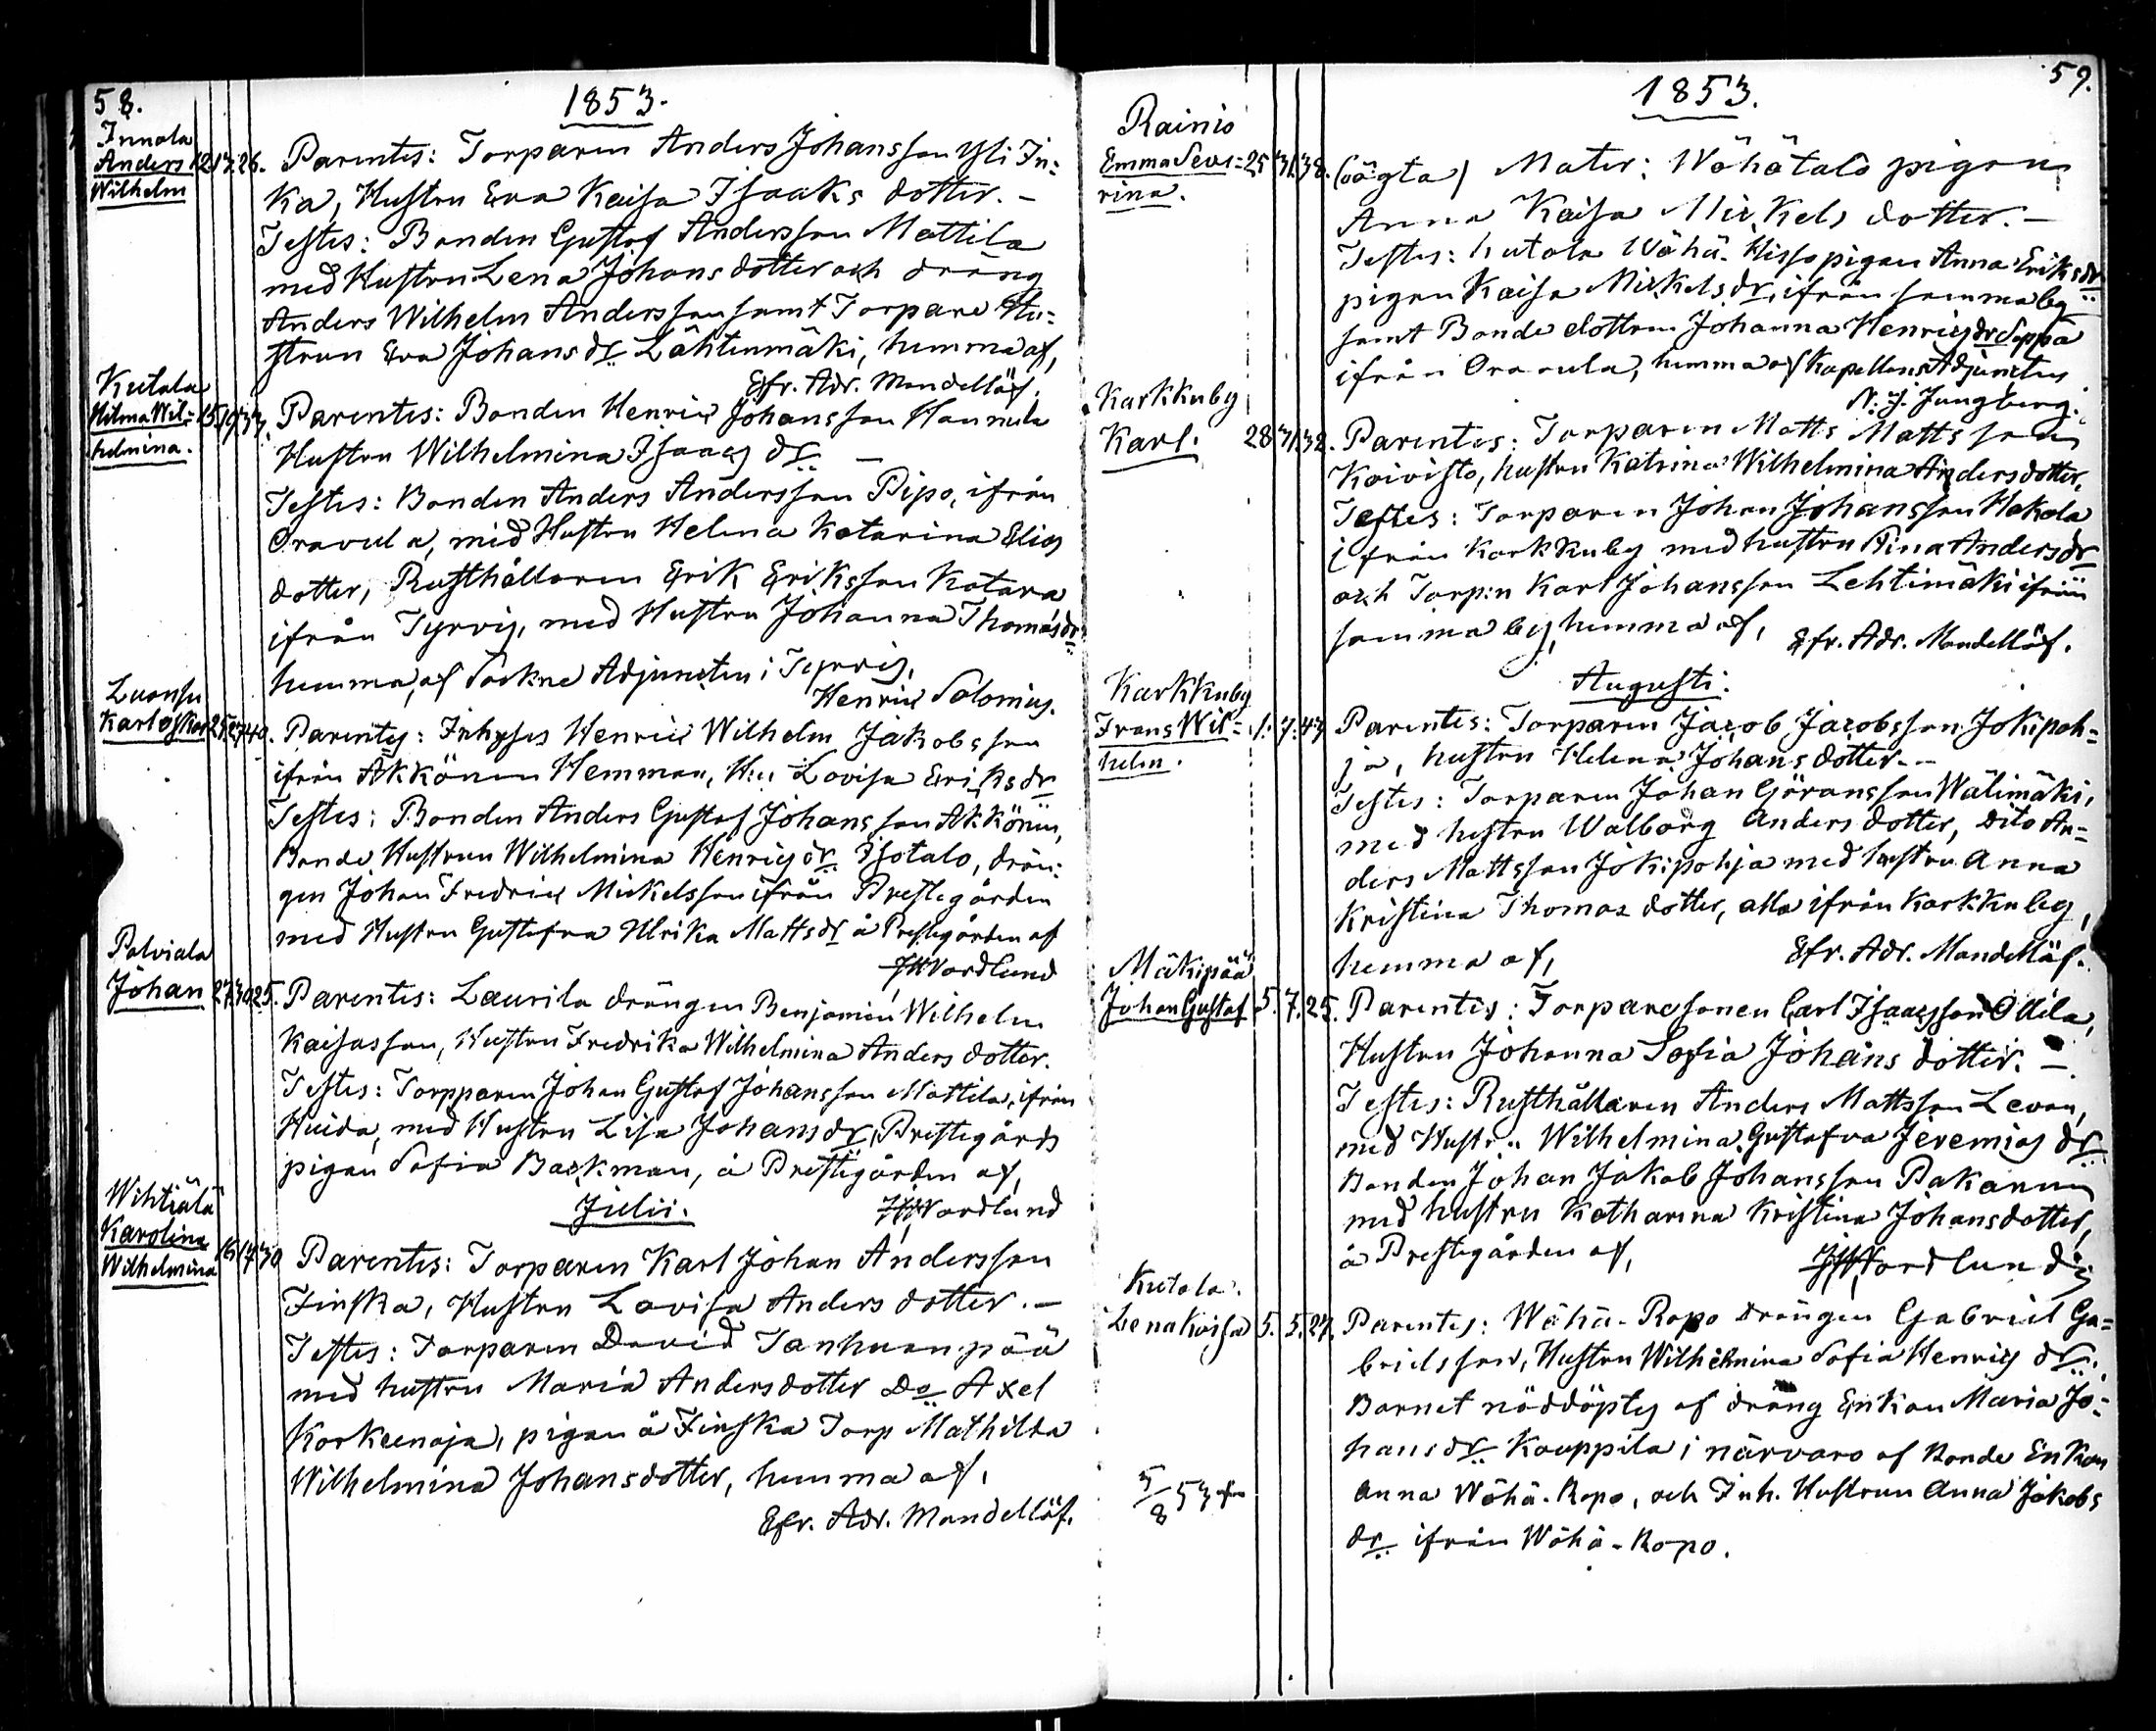 58.
1853.
Innala
Anders 12 17. 26.
Wilhelm
Parentes: Torparen Anders Johansson Yli In=
ka, Hustru Eva Kaisa Isaaks dotter. –
Testes: Bonden Gustaf Andersson Mattila
med Hustru Lena Johans dotter och dräng
Anders Wilhelm Andersson samt Torpare Hu=
strun Eva Johans dr Lähteenmäki, hemma af,
Efr. Adr. Mandellöf.
Kutala
Hilma Wil= 15. 19. 33.
helmina.
Parentes: Bonden Henric Johansson Hannula
Hustru Wilhelmina Isaacs dr –
Testes: Bonden Anders Andersson Pipo, ifrån
Oravula, med Hustru Helena Katarina Elias
dotter, Rusthållaren Erik Eriksson Katara
ifrån Tyrvis, med Hustru Johanna Thomas dr
hemma, af Sockne Adjuncten i Tyrvis,
Henric Salonius.
Luonsu
Karl Oskar 25 27 40.
Parentes: Inhyses Henric Wilhelm Jakobsson
ifrån Akkönen Hemman, H:u Lovisa Eriks dr
Testes: Bonden Anders Gustaf Johansson Akkönen,
Bonde Hustrun Wilhelmina Henrics dr Isotalo, drän:
gen Johan Fredric Mickelsson ifrån Prestegården
med Hustru Gustafva Ulrika Matts dr å Prestegården af
JWNordlund
Palviala
Johan 27 30 25.
Parentes: Laurila drängen Benjamin Wilhelm
Kaisasson, Hustru Fredrika Wilhelmina Anders dotter.
Testes: Torpparen Johan Gustaf Johansson Mattila, ifrån
Huida, med Hustru Lisa Johans dr, Prestegårds
pigan Sofia Backman, å Prestegården af,
JWNordlund
Julii.
Wihtiälä
Karolina
Wilhelmina 16 17 30
Parentes: Torparen Karl Johan Andersson
Finska, Hustru Lovisa Anders dotter. –
Testes: Torparen David Tanhuanpää
med hustru Maria Andersdotter Do Axel
Korkeenoja, pigan å Finska Torp Mathilda
Wilhelmina Johansdotter, hemma af,
Efr. Adr. Mandellöf.
59.
1853.
Rainio
Emma Seve= 25 31 38.
rina.
(oägta) Mater: Wähätalo pigan
Anna Kaisa Mickels dotter. –
Testes: Kutala Wähä-Hissa pigan Anna Eriks dr
pigan Kaisa Mickels dr, ifrån samma by
samt Bonde dottren Johanna Henrics dr Seppä
ifrån Oravula, hemma af Kapellans Adjunctus
N. J. Jungberg.
Karkkuby
Karl. 28 31 32.
Parentes: Torparen Matts Mattsson
Koivisto, hustru Katrina Wilhelmina Andersdotter,
Testes: Torparen Johan Johansson Hakala
ifrån Karkkuby med hustru Stina Anders dr
och Torp:n Karl Johansson Lehtimäki ifrån
samma by, hemma af,
Efr. Adr. Mandellöf.
Augusti.
Karkkuby
Frans Wil= 1. 7. 43
helm.
Parentes: Torparen Jacob Jacobsson Jokipoh=
ja, hustru Helena Johans dotter. –
Testes: Torparen Johan Göransson Wälimäki,
med hustru Walborg Anders dotter, dito An=
ders Mattsson Jokipohja med hustru Anna
Kristina Thomas dotter, alla ifrån Karkkuby,
hemma af,
Efr. Adr. Mandellöf.
Mäkipää
Johan Gustaf 5. 7. 25.
Parentes: Torparesonen Carl Isaacsson Ollila,
Hustru Johanna Sofia Johans dotter. –
Testes: Rusthållaren Anders Mattsson Levon,
med Hustru Wilhelmina Gustafva Jeremias dr
Bonden Johan Jakob Johansson Pakanen
med hustru Katharina Kristina Johansdotter,
å Prestegården af,
JWNordlund
Kutala.
Lena Kaisa 5. 5. 27.
Parentes: Wähä-Ropo drängen Gabriel Ga=
brielsson, Hustru Wilhelmina Sofia Henrics dr.
Barnet nöddöptes af dräng Enkan Maria Jo=
hans dr Kauppila i närvaro af Bonde Enkan
Anna Wähä-Ropo, och Inh. Hustrun Anna Jakobs
dr ifrån Wähä-Ropo.
5/8 53